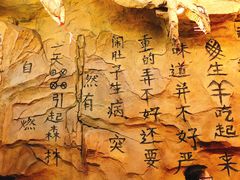 生羊吃起来
味道并不好严
重的弄不好还要
闹肚子生病突
然有
一天引起森林
自燃